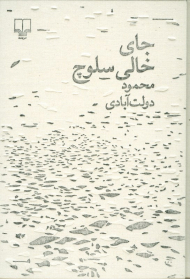 جای
خالی سلوچ
محمود
دولت‌آبادی